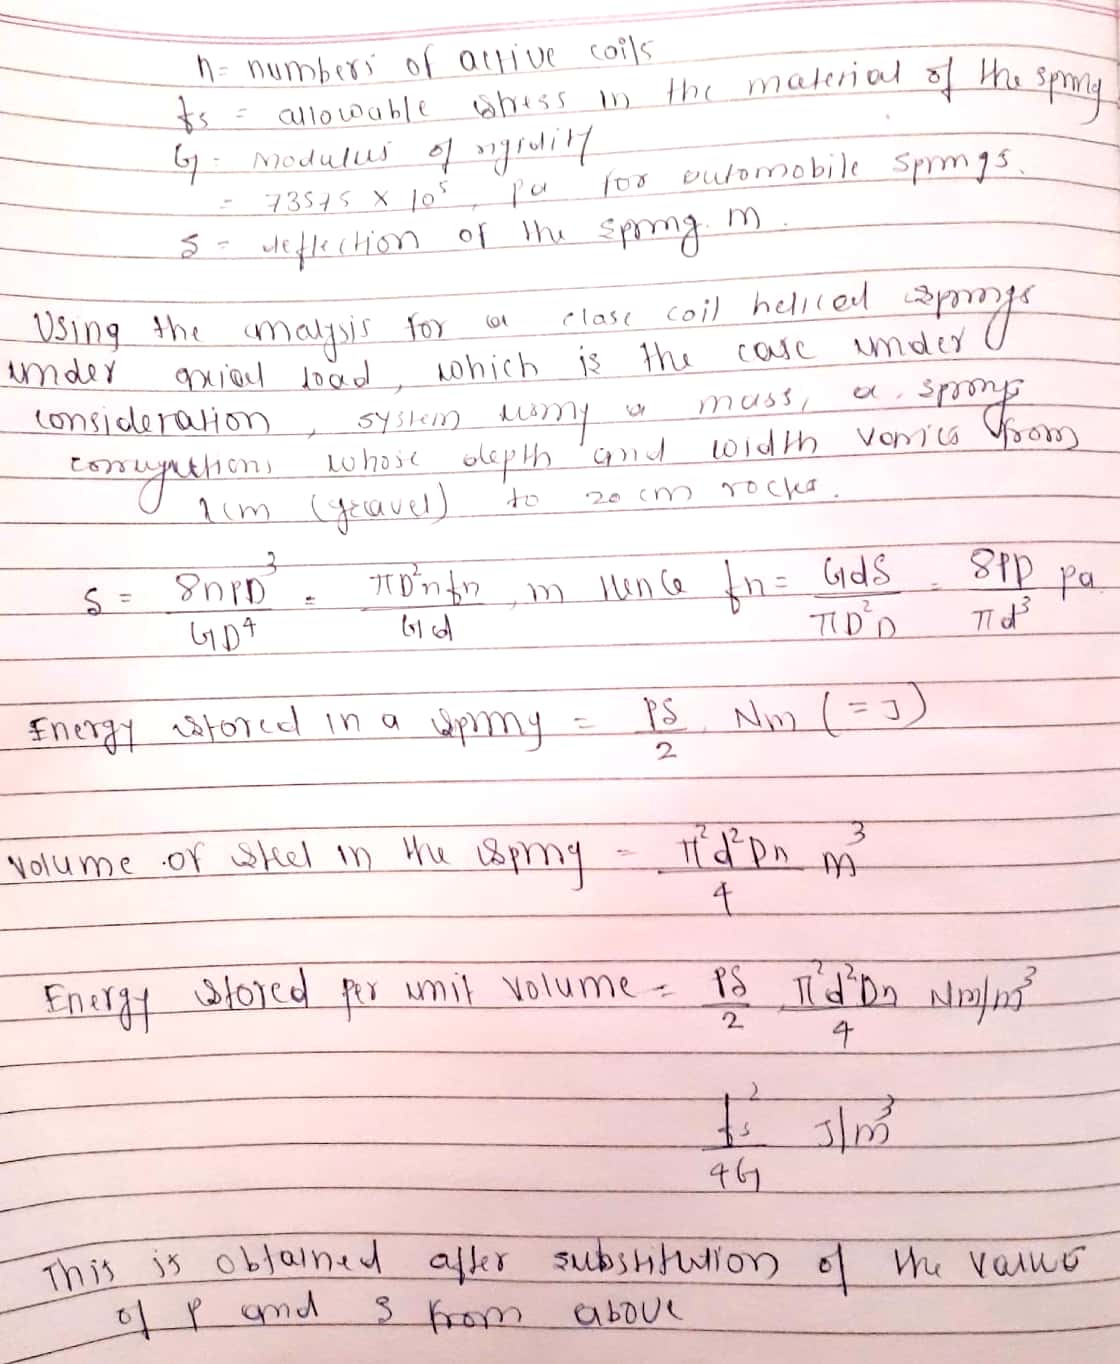 n = numbers of active coils
fs = allowable stress in the material of the spring
G = Modulus of rigidity
= 73575 × 10⁵, Pa for automobile springs.
S = deflection of the spring. m.
Using the analysis for a close coil helical springs
under axial load, which is the case under
consideration, system using a mass, a spring
corrugations whose depth and width varies from
2cm (gravel) to 20 cm rocks.
S = 8nPD³/GD⁴ = πD²nfn/Gd, m Hence fn = GdS/πD²n = 8PD/πd³ pa
Energy stored in a spring = PS/2 Nm (=J)
Volume of steel in the spring = π²d²Dn/4 m³
Energy stored per unit volume = PS/2 π²d²Dn/4 Nm/m³
fs²/4G J/m³
This is obtained after substitution of the value
of P and S from above